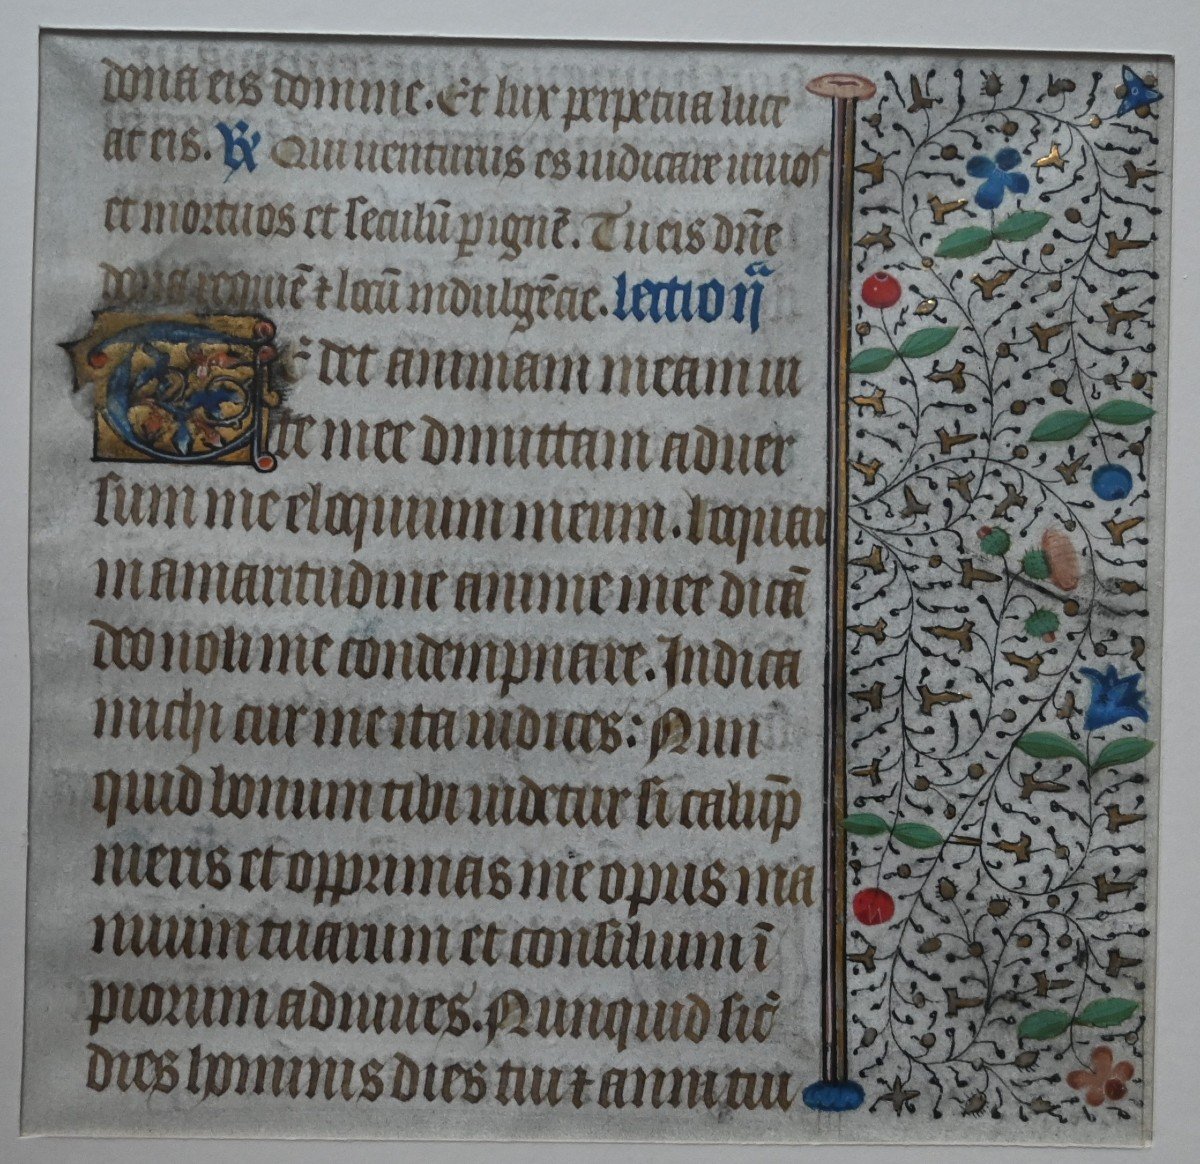 dona eis domine. Et lux perpetua luce
at eis. R Qui uenturus es iudicare uiuos
et mortuos et seculū p ignē. Tu eis dñe
dona requiē ⁊ locū indulgēcie. lectio ij
det animam meam ui
te mee dimittam aduer
sum me eloquium meum. loquar
in amaritudine anime mee dicā
deo noli me condempnare. Indica
michi cur me ita iudices: Nun
quid bonum tibi uidetur si calūp
nieris et opprimas me opus ma
nuum tuarum et consilium ī
piorum adiuues. Nunquid sic̄
dies hominis dies tui ⁊ anni tui